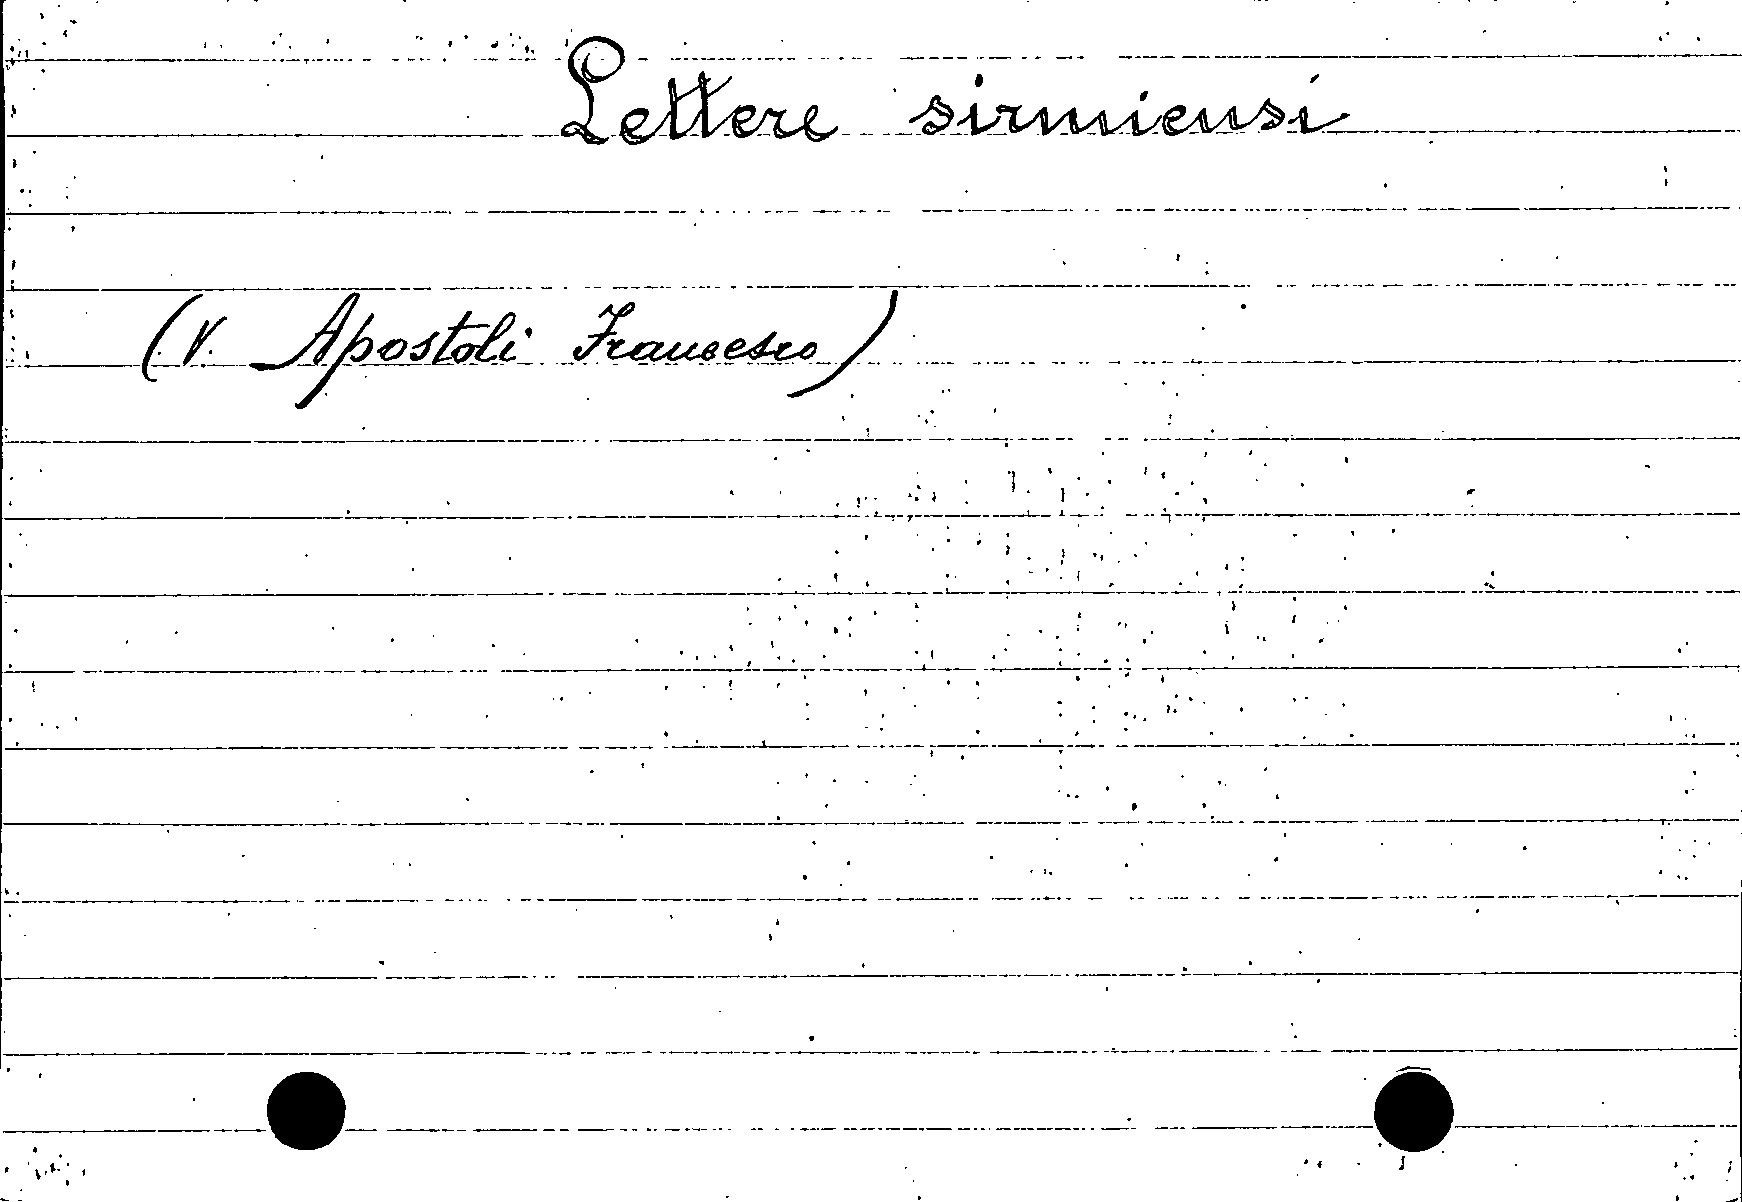 Lettere sirmiensi
(V. Apostoli Francesco)